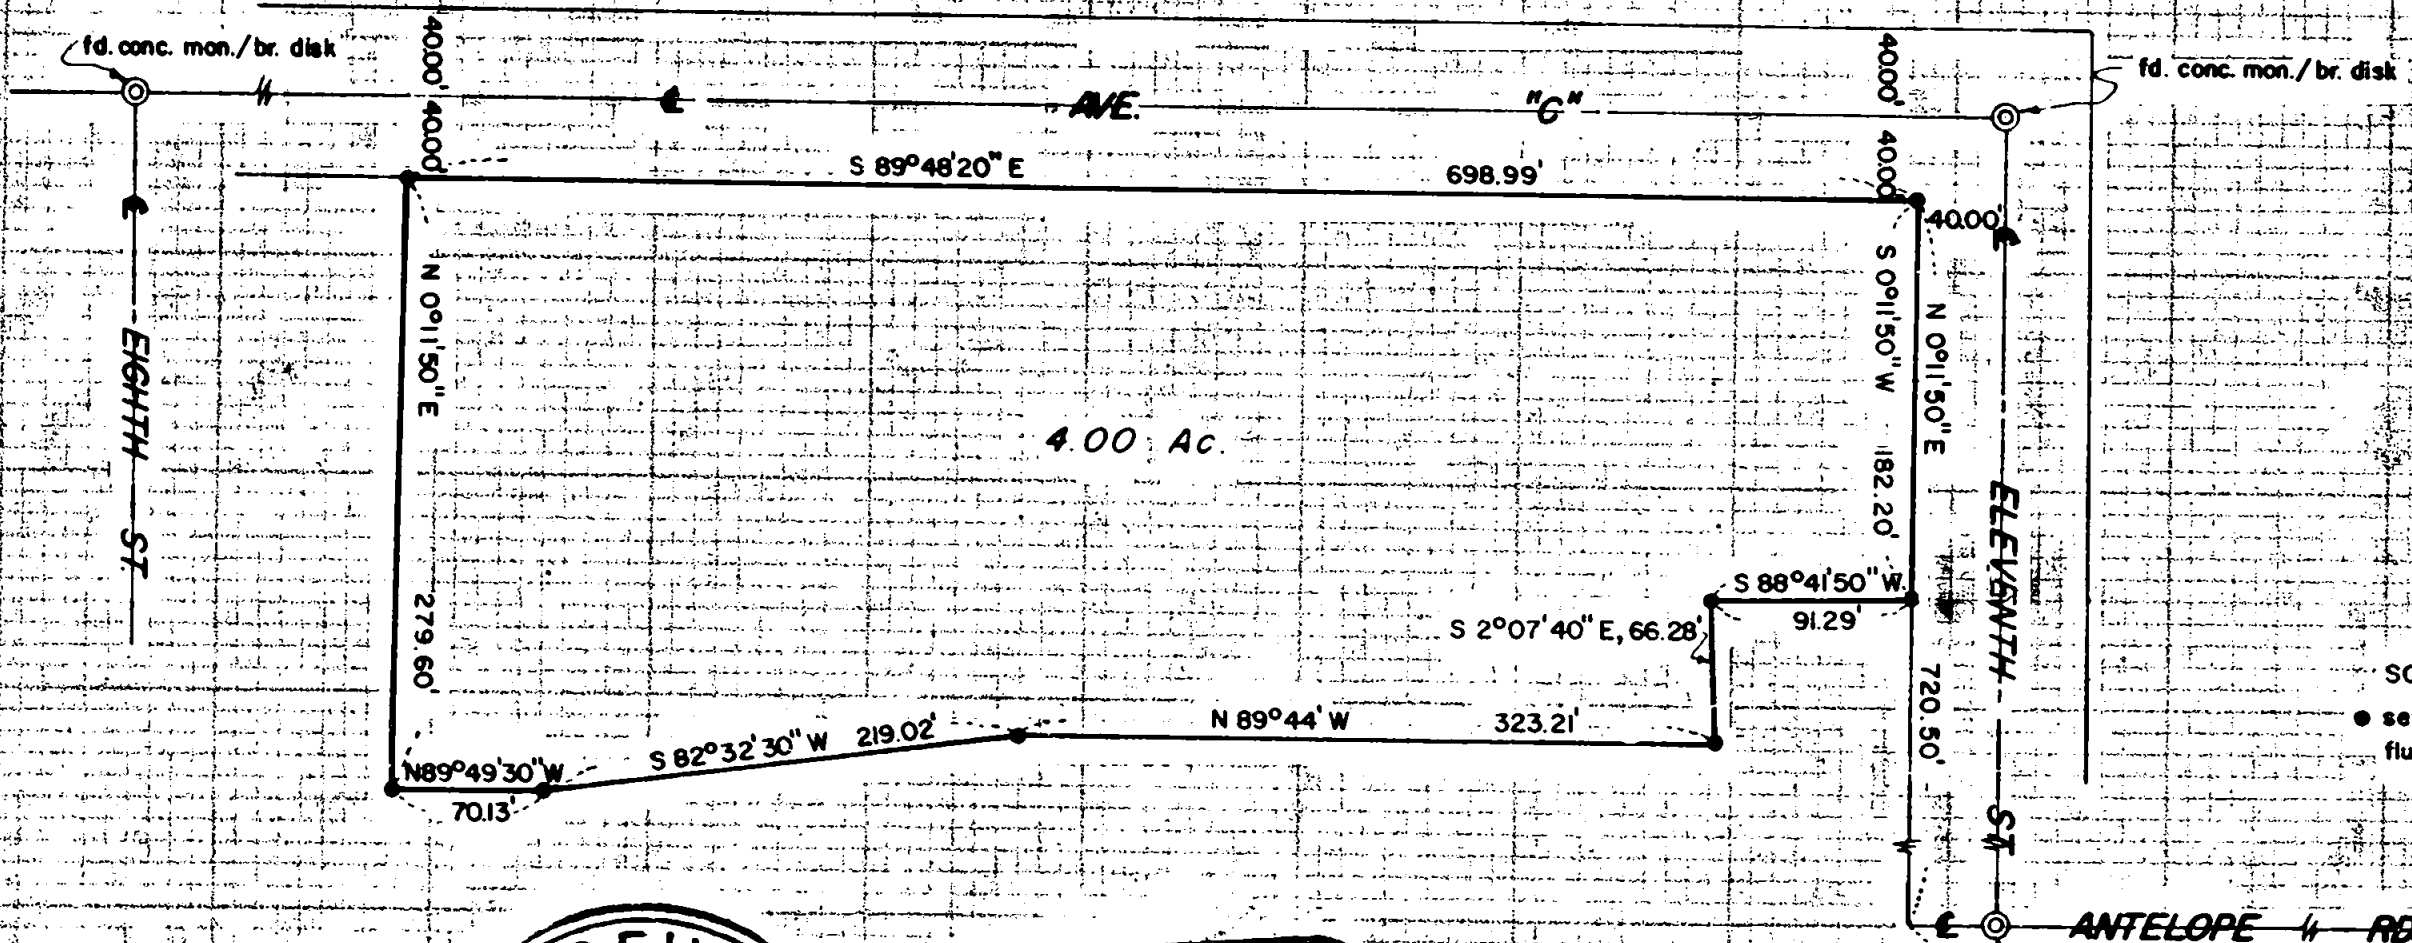 fd. conc. mon./br. disk
40.00'
40.00'
40.00'
40.00'
fd. conc. mon./br. disk
℄ AVE. "C"
S 89°48'20" E 698.99'
40.00'
℄
℄
EIGHTH ST.
N 0°11'50" E
279.60'
S 0°11'50" W 182.20'
N 0°11'50" E
720.50'
ELEVENTH ST
4.00 Ac.
S 88°41'50" W
91.29'
S 2°07'40" E, 66.28'
N 89°44' W 323.21'
S 82°32'30" W 219.02'
N89°49'30"W
70.13'
SC
● se
flu
℄ ANTELOPE RD